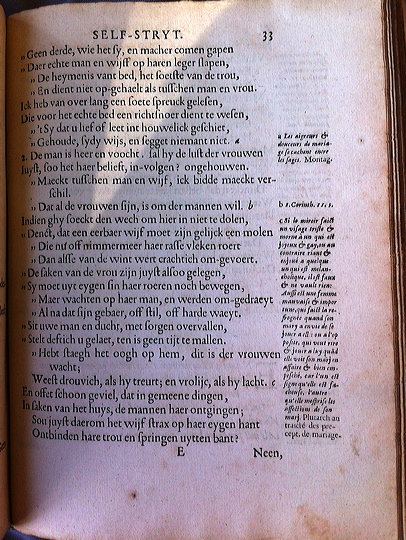 SELF-STRYT. 33
„ Geen derde, wie het sy, en macher comen gapen
„ Daer echte man en wijff op haren leger slapen,
„ De heymenis vant bed, het soetste van de trou,
„ En dient niet op-gehaelt als tusschen man en vrou.
Ick heb van over lang een soete spreuck gelesen,
Die voor het echte bed een richtsnoer dient te wesen,
„ 't Sy dat u lief of leet int houwelick geschiet,
„ Gehoude, sydy wijs, en segget niemant niet. a
2. De man is heer en voocht. sal hy de lust der vrouwen
Iuyst, soo het haer belieft, in-volgen? ongehouwen.
„ Maeckt tusschen man en wijf, ick bidde maeckt ver-
schil.
„ Dat al de vrouwen sijn, is om der mannen wil. b
Indien ghy soeckt den wech om hier in niet te dolen,
„ Denckt, dat een eerbaer wijf moet zijn gelijck een molen
„ Die nu off nimmermeer haer rasse vleken roert
„ Dan alsse van de wint wert crachtich om-gevoert.
„ De saken van de vrou zijn juyst alsoo gelegen,
„ Sy moet uyt eygen sin haer roeren noch bewegen,
„ Maer wachten op haer man, en werden om-gedraeyt
„ Al na dat sijn gebaer, off stil, off harde waeyt.
„ Sit uwe man en ducht, met sorgen overvallen,
„ Stelt deftich u gelaet, ten is geen tijt te mallen.
„ Hebt staegh het oogh op hem, dit is der vrouwen
wacht;
Weest drouvich, als hy treurt; en vrolijc, als hy lacht. c
En offet schoon geviel, dat in gemeene dingen,
In saken van het huys, de mannen haer ontgingen;
Sou juyst daerom het wijf strax op haer eygen hant
Ontbinden hare trou en springen uytten bant?
E Neen,
a Les aigreurs &
douceurs de maria-
ge se cachent entre
les sages. Montag.
b 1. Corinth. 11. 9.
c Si le miroir faict
un visage triste &
morne à un qui est
joyeux & gay, ou au
contraire riant &
enjoué a quelque
un qui est melan-
cholique, il est faux
& ne vault rien:
Aussi est une femme
mauvaise & impor
tune, qui faict la re-
frongnée quand son
mary a envie de se
jouer a elle: ou a l'op
posite, qui veut rire
& jouer la ou quãd
elle voit son mary en
affaire & bien em-
pesché, car l'un est
signe qu'elle est fa-
cheuse, l'autre
qu'elle mesprise les
affections de son
mary. Plutarch au
traicté des pre-
cept. de mariage.